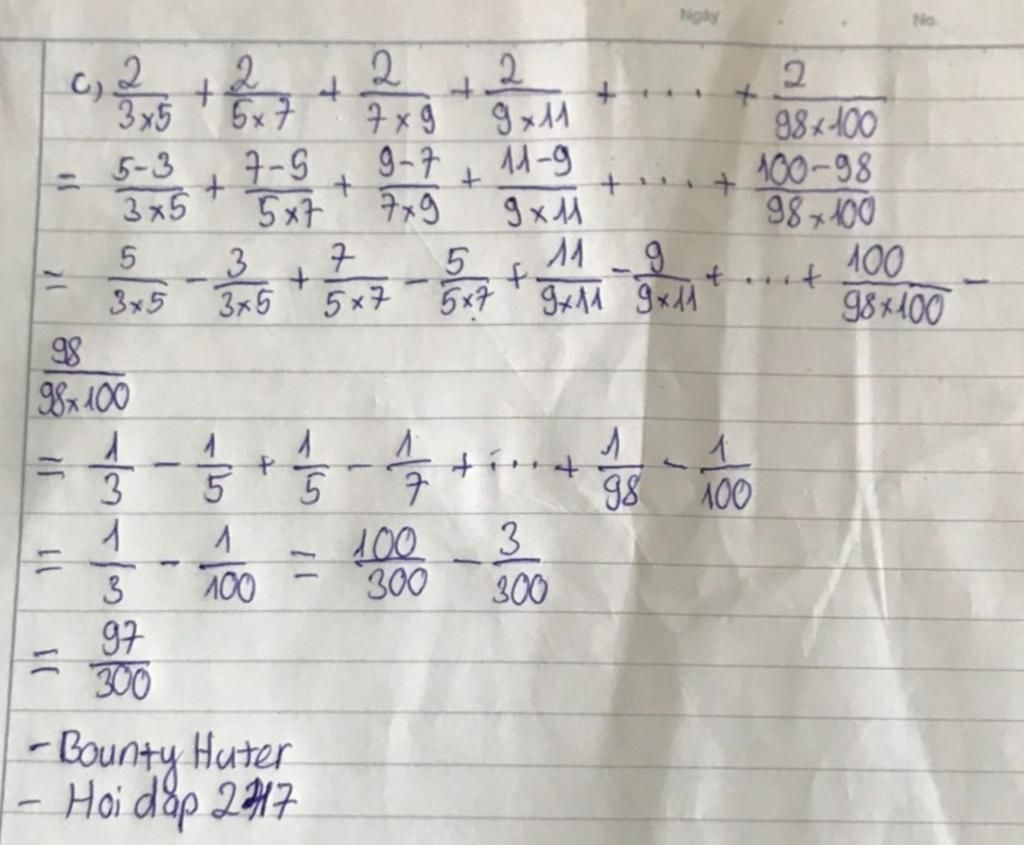 Ngày . . No.
c) 2/(3×5) + 2/(5×7) + 2/(7×9) + 2/(9×11) + .... + 2/(98×100)
= (5-3)/(3×5) + (7-5)/(5×7) + (9-7)/(7×9) + (11-9)/(9×11) + .... + (100-98)/(98×100)
= 5/(3×5) - 3/(3×5) + 7/(5×7) - 5/(5×7) + 11/(9×11) - 9/(9×11) + ... + 100/(98×100) -
98/(98×100)
= 1/3 - 1/5 + 1/5 - 1/7 + ... + 1/98 - 1/100
= 1/3 - 1/100 = 100/300 - 3/300
= 97/300
- Bounty Huter
- Hoi dap 247